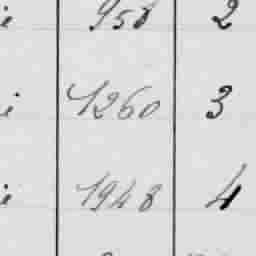 i 958 2
i 1260 3
i 1948 4